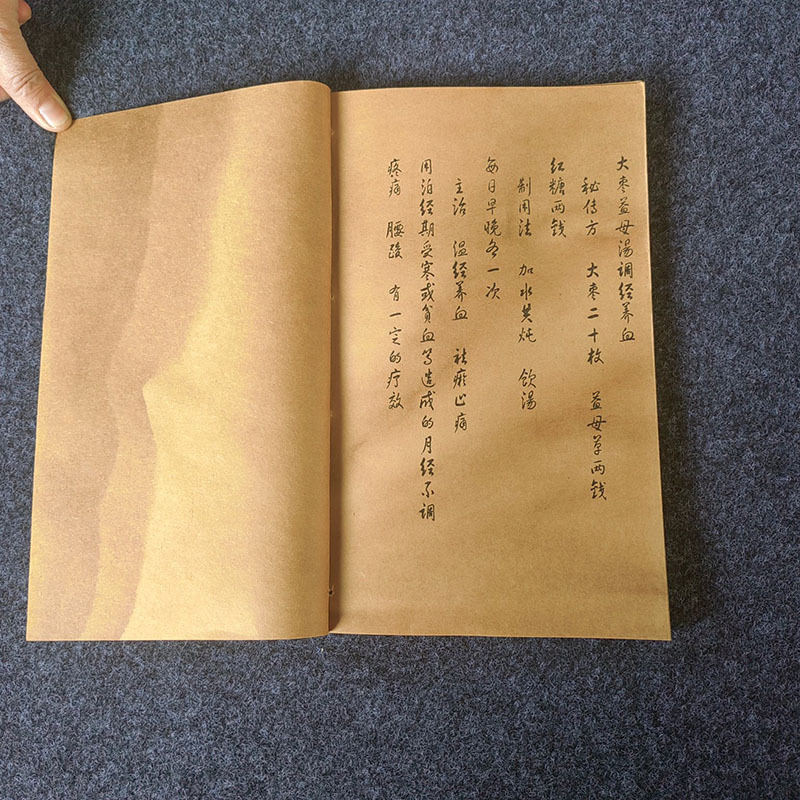 大枣益母汤调经养血
秘传方 大枣二十枚 益母草两钱
红糖两钱
制用法 加水共炖 饮汤
每日早晚各一次
主治 温经养血 祛瘀止痛
用泊经期受寒或贫血等造成的月经不调
疼痛 腰酸 有一定的疗效